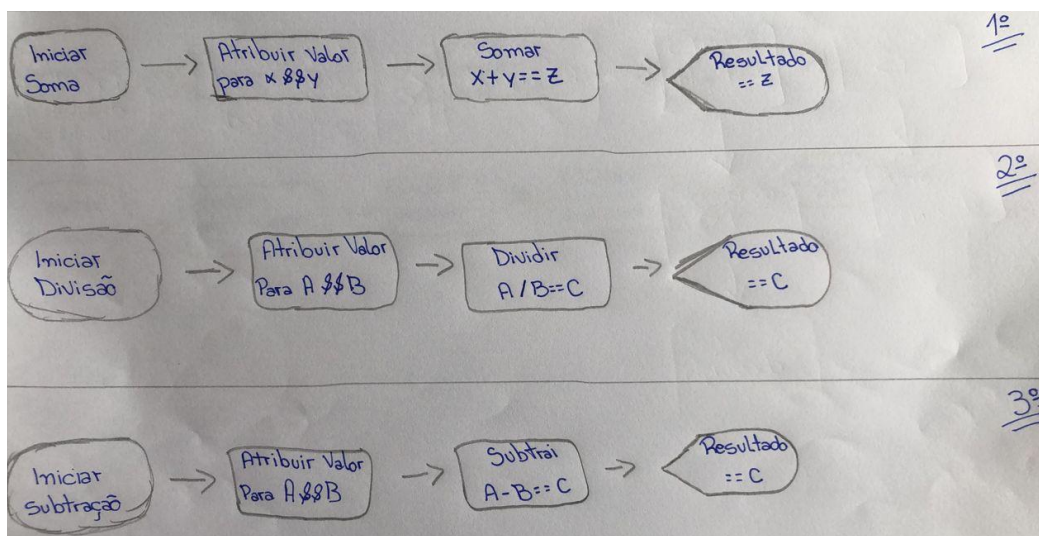 1º
Iniciar
Soma
Atribuir Valor
para x $$ y
Somar
X+y==Z
Resultado
== Z
2º
Iniciar
Divisão
Atribuir Valor
Para A $$ B
Dividir
A/B==C
Resultado
==C
3º
Iniciar
subtração
Atribuir Valor
Para A $$ B
Subtrai
A-B==C
Resultado
==C